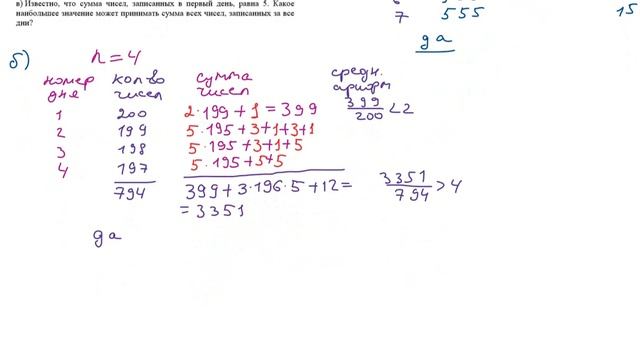 в) Известно, что сумма чисел, записанных в первый день, равна 5. Какое
наибольшее значение может принимать сумма всех чисел, записанных за все
дни?
7 555 15
да
б) n = 4
номер дня
кол-во чисел
сумма чисел
средн. арифм
1 200 2·199+1=399 399/200 <2
2 199 5·195+3+1+3+1
3 198 5·195+3+1+5
4 197 5·195+5+5
794 399+3·196·5+12= 3351/794 >4
=3351
да